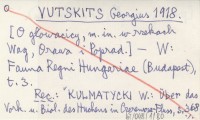 VUTSKITS Georgius 1918.
[O głowacicy, m.in. w rzekach
Wag, Orawa i Poprad.] - W:
Fauna Regni Hungariae (Budapest),
t. 3.
Rec.: KULMATYCKI W.: Über das
Vork. u. Biol. des Huchens im Czeremosz-Fluss, s. 368